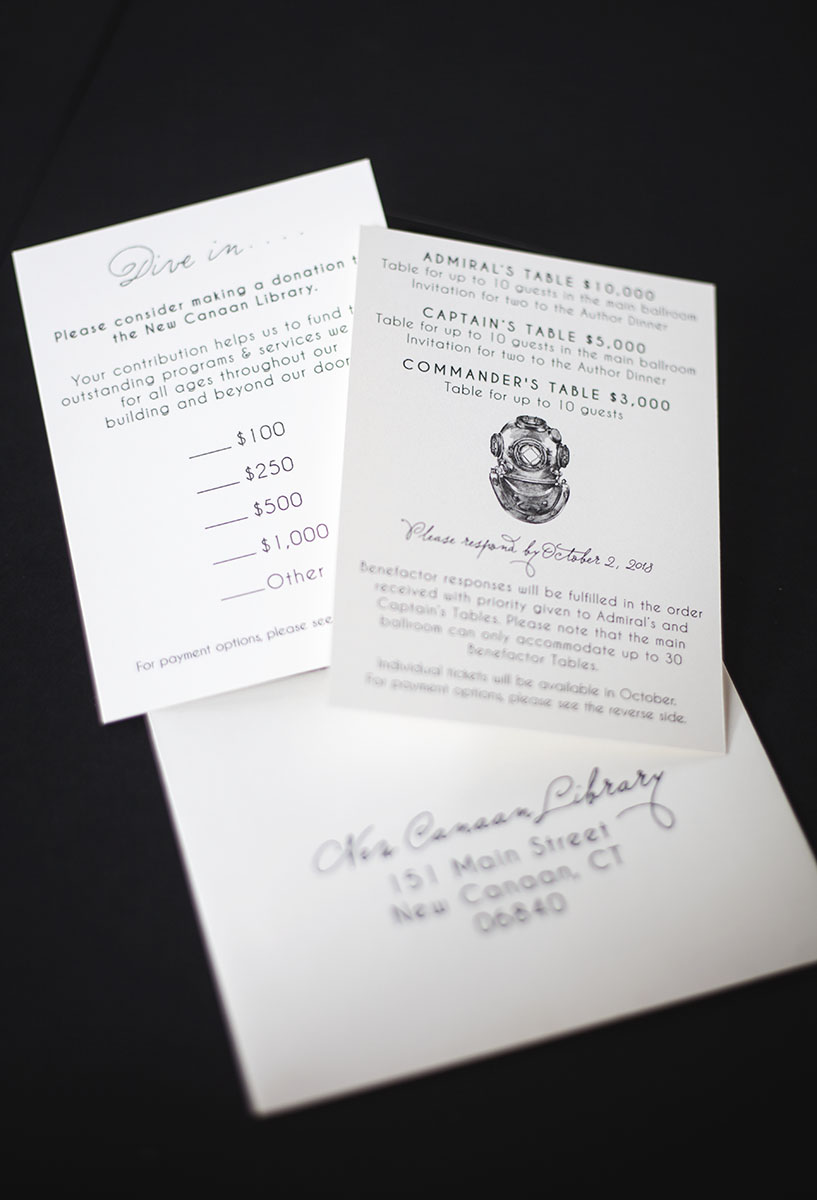 Dive in....
Please consider making a donation t
the New Canaan Library.
Your contribution helps us to fund t
outstanding programs & services we
for all ages throughout our
building and beyond our door
____$100
____$250
____$500
____$1,000
____Other
For payment options, please see
ADMIRAL'S TABLE $10,000
Table for up to 10 guests in the main ballroom
Invitation for two to the Author Dinner
CAPTAIN'S TABLE $5,000
Table for up to 10 guests in the main ballroom
Invitation for two to the Author Dinner
COMMANDER'S TABLE $3,000
Table for up to 10 guests
Please respond by October 2, 2018
Benefactor responses will be fulfilled in the order
received with priority given to Admiral's and
Captain's Tables. Please note that the main
ballroom can only accommodate up to 30
Benefactor Tables.
Individual tickets will be available in October.
For payment options, please see the reverse side.
New Canaan Library
151 Main Street
New Canaan, CT
06840